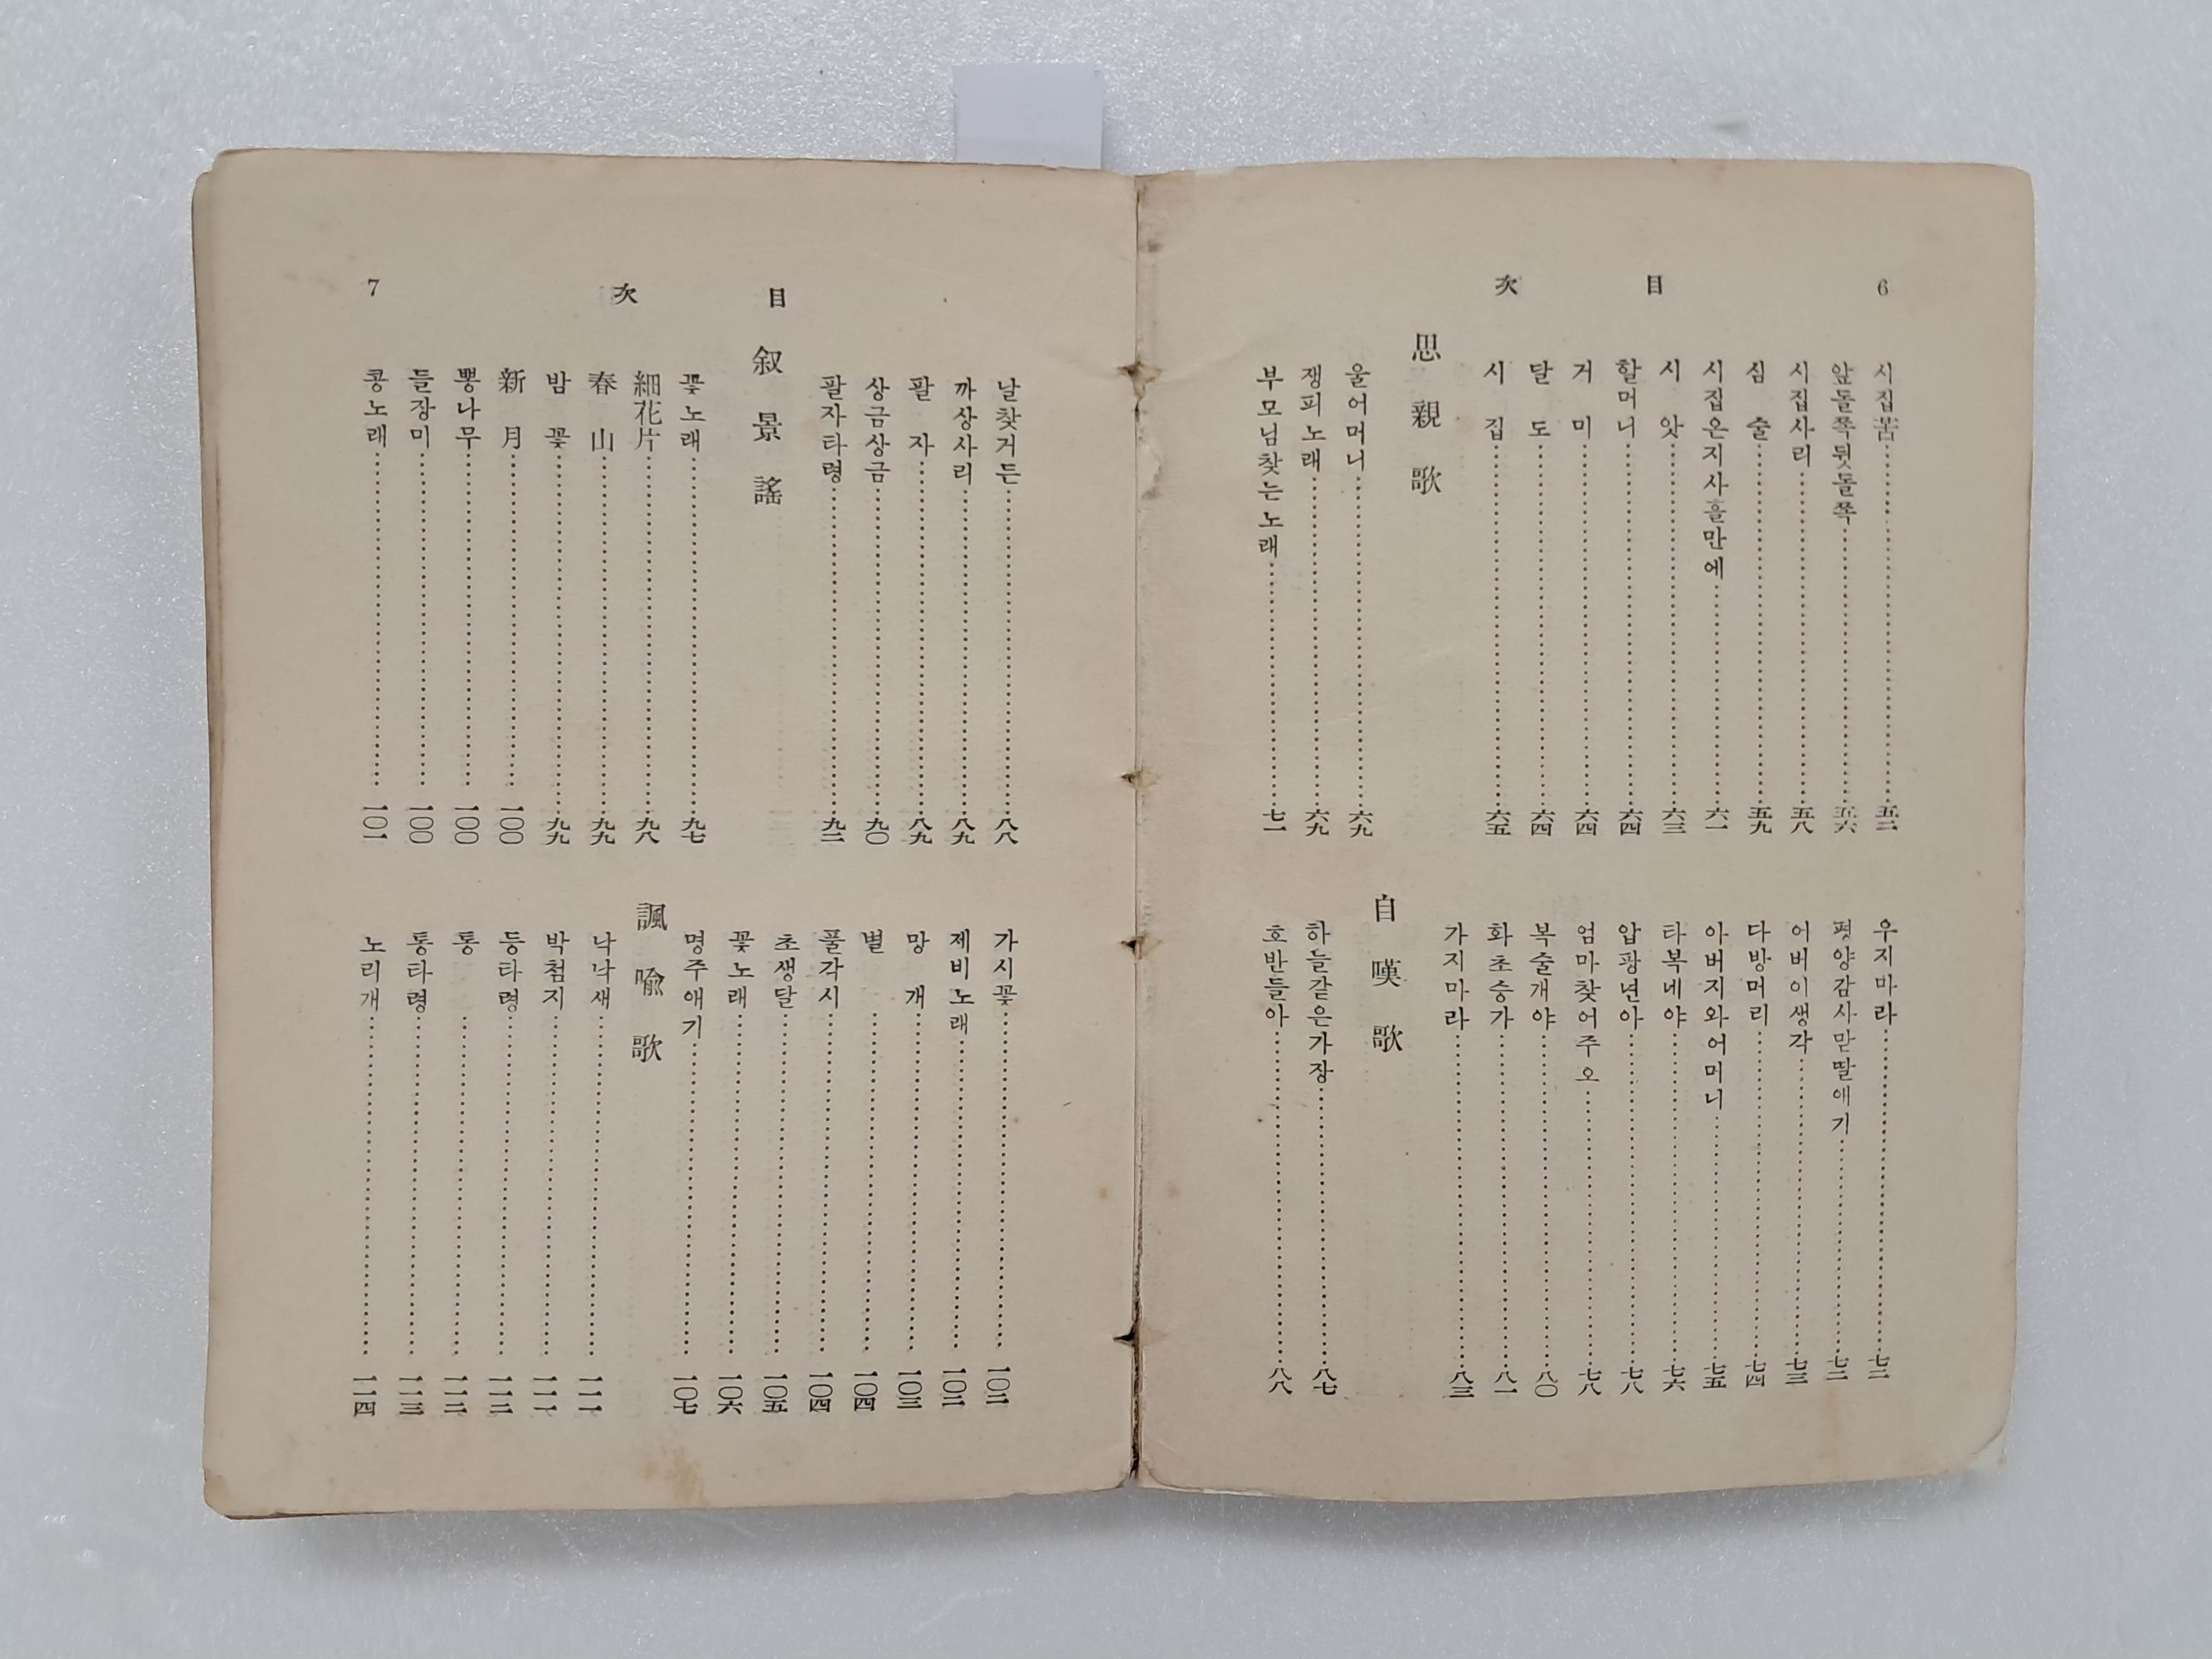 6 目次
시집苦 五二
앞돌쪽뒷돌쪽 五六
시집사리 五八
심술 五九
시집온지사흘만에 六一
시앗 六三
할머니 六四
거미 六四
달도 六四
시집 六五
思親歌
울어머니 六九
쟁피노래 六九
부모님찾는노래 七一
우지마라 七二
평양감사맏딸애기 七二
어버이생각 七三
다방머리 七四
아버지와어머니 七五
타복네야 七六
압광년아 七八
엄마찾어주오 七八
복술개야 八〇
화초승가 八一
가지마라 八三
自嘆歌
하늘같은가장 八七
호반들아 八八
目次 7
날찾거든 八八
까상사리 八九
팔자 八九
상금상금 九〇
팔자타령 九二
叙景謠
꽃노래 九七
細花片 九八
春山 九九
밤꽃 九九
新月 一〇〇
뽕나무 一〇〇
들장미 一〇〇
콩노래 一〇一
가시꽃 一〇二
제비노래 一〇二
망개 一〇三
별 一〇四
풀각시 一〇四
초생달 一〇五
꽃노래 一〇六
명주애기 一〇七
諷喩歌
낙낙새 一一一
박첨지 一一一
등타령 一一二
통 一一二
통타령 一一三
노리개 一一四